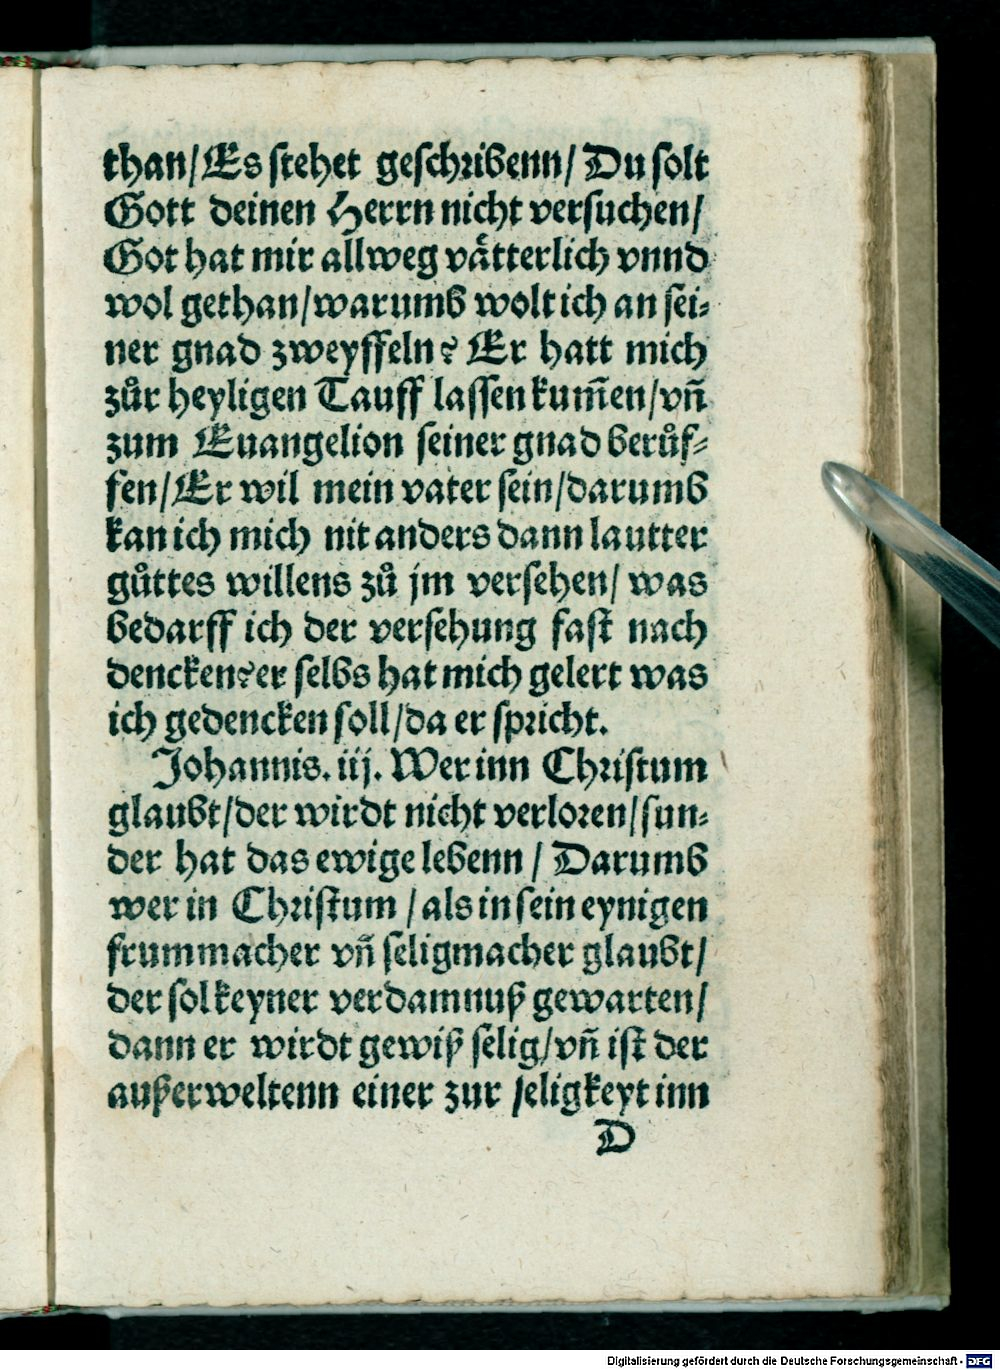 than/Es stehet geschribenn/Du solt
Gott deinen Herrn nicht versuchen/
Got hat mir allweg vaͤtterlich vnnd
wol gethan/warumb wolt ich an sei⸗
ner gnad zweyffeln? Er hatt mich
zůr heyligen Tauff lassen kum̃en/vñ
zum Euangelion seiner gnad berůf⸗
fen/Er wil mein vater sein/darumb
kan ich mich nit anders dann lautter
gůttes willens zů jm versehen/ was
bedarff ich der versehung fast nach
dencken? er selbs hat mich gelert was
ich gedencken soll/da er spricht.
Johannis. iij. Wer inn Christum
glaubt/der wirdt nicht verloren/sun⸗
der hat das ewige lebenn / Darumb
wer in Christum /als in sein eynigen
frummacher vñ seligmacher glaubt/
der sol keyner verdamnuß gewarten/
dann er wirdt gewiß selig/vñ ist der
außerweltenn einer zur seligkeyt inn
D
Digitalisierung gefördert durch die Deutsche Forschungsgemeinschaft - DFG